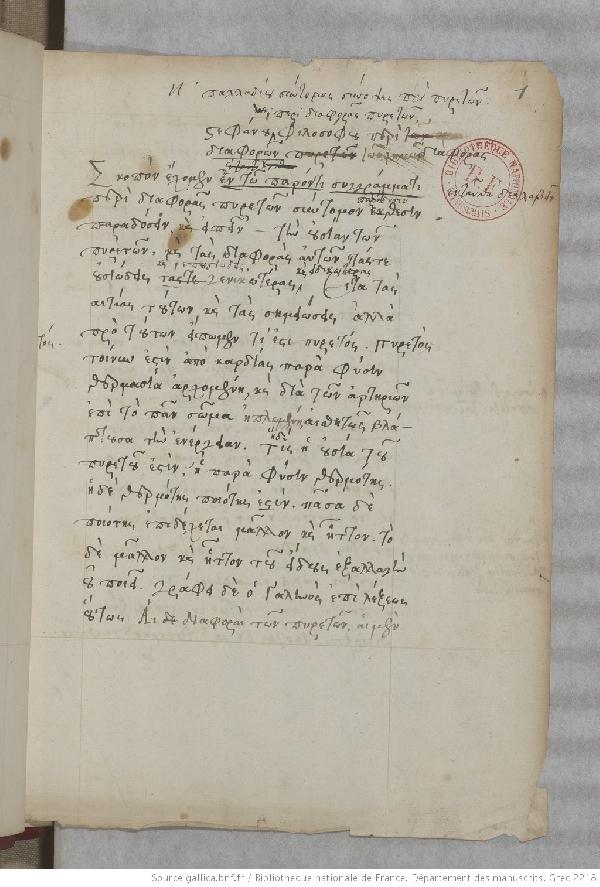 Παλλαδίου σύντομος σύνοψις περὶ πυρετῶν
1
περὶ διαφορᾶς πυρετῶν
Στεφάνου φιλοσόφου περὶ
διαφορῶν πυρετῶν διαφορᾶς
Σκοπὸν ἔχομεν ἐν τῷ παρόντι συγγράμματι
περὶ διαφορᾶς πυρετῶν σύντομον
παράδοσιν καὶ εἰπεῖν τὴν οὐσίαν τῶν
πυρετῶν, καὶ τὰς διαφορὰς αὐτῶν τάς τε
οὐσιώδεις τάς τε γενικωτέρας, εἶτα τὰς
αἰτίας τούτων καὶ τὰς σημειώσεις ἀλλὰ
πρὸ τούτων εἴπωμεν τί ἐστι πυρετός. πυρετὸς
τοίνυν ἐστὶν ἀπὸ καρδίας παρὰ φύσιν
θερμασία ἀρχομένη, καὶ διὰ τῶν ἀρτηριῶν
ἐπὶ τὸ πᾶν σῶμα αἰσθητῶς βλά-
πτουσα τὴν ἐνέργειαν. τίς ἡ οὐσία τοῦ
πυρετοῦ ἐστὶν; ἡ παρὰ φύσιν θερμότης.
ἡ δὲ θερμότης ποιότης ἐστίν. πᾶσα δὲ
ποιότης ἐπιδέχεται μᾶλλον καὶ ἧττον. τὸ
δὲ μᾶλλον καὶ ἧττον τοῦ εἴδους ἐξαλλαγὴν
οὐ ποιεῖ. γράφει δὲ ὁ Γαληνὸς ἐπὶ λέξεως
οὕτως Αἱ δὲ διαφοραὶ τῶν πυρετῶν, αἱ μὲν
BIBLIOTHÈQUE NATIONALE
MANUSCRITS
Source gallica.bnf.fr / Bibliothèque nationale de France. Département des manuscrits. Grec 2216